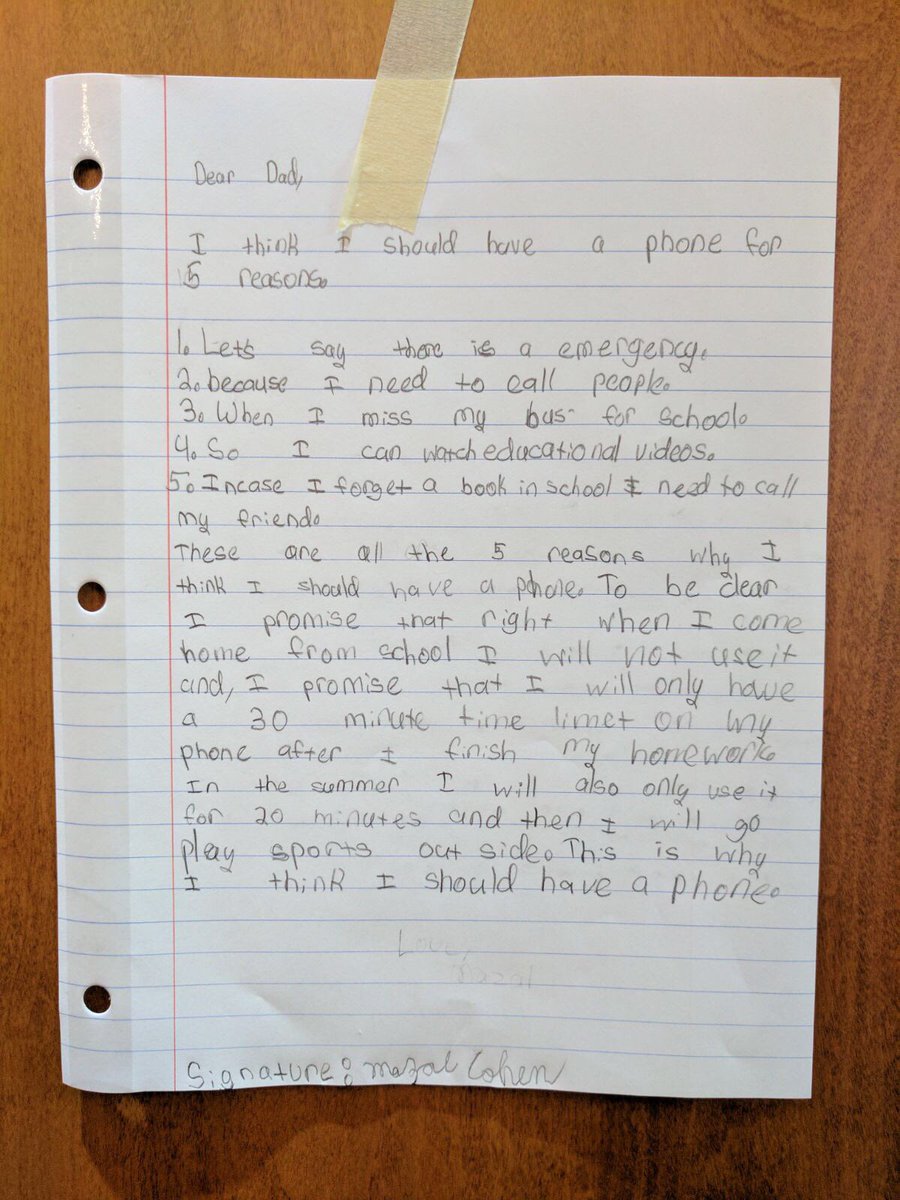 Dear Dad,
I think I should have a phone for
5 reasons.
1. Let's say there is a emergency.
2. because I need to call people.
3. When I miss my bus for school.
4. So I can watch educational videos.
5. Incase I forget a book in school I need to call
my friend.
These are all the 5 reasons why I
think I should have a phone. To be clear
I promise that right when I come
home from school I will not use it
and, I promise that I will only have
a 30 minute time limet on my
phone after I finish my homework.
In the summer I will also only use it
for 20 minutes and then I will go
play sports out side. This is why
I think I should have a phone.
Love,
Mazal
Signature: mazal Cohen